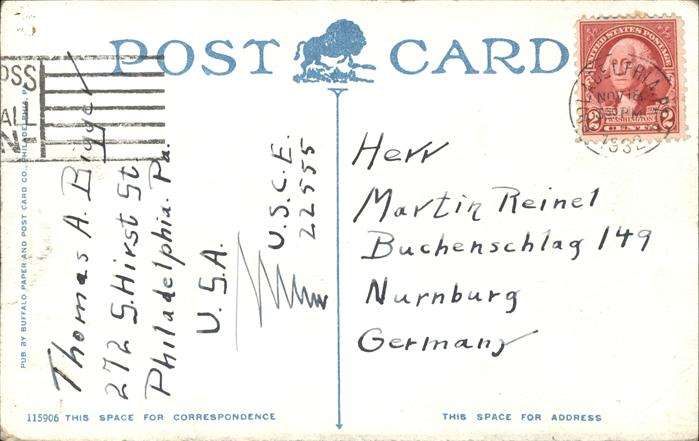 POST CARD
UNITED STATES POSTAGE
WASHINGTON
2 CENTS 2
PHILADELPHIA, PA.
NOV 18
30 PM
1932
OSS
ALL
Thomas A. Bigger
272 S. Hirst St
Philadelphia Pa.
U.S.A.
U.S.C.E.
22555
Herr
Martin Reinel
Buchenschlag 149
Nurnburg
Germany
PUB. BY BUFFALO PAPER AND POST CARD CO., PHILADELPHIA, PA.
115906 THIS SPACE FOR CORRESPONDENCE
THIS SPACE FOR ADDRESS